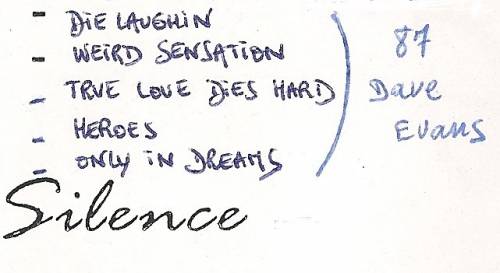 - DIE LAUGHIN
- WEIRD SENSATION
- TRUE LOVE DIES HARD
- HEROES
- ONLY IN DREAMS
87
Dave
Evans
Silence